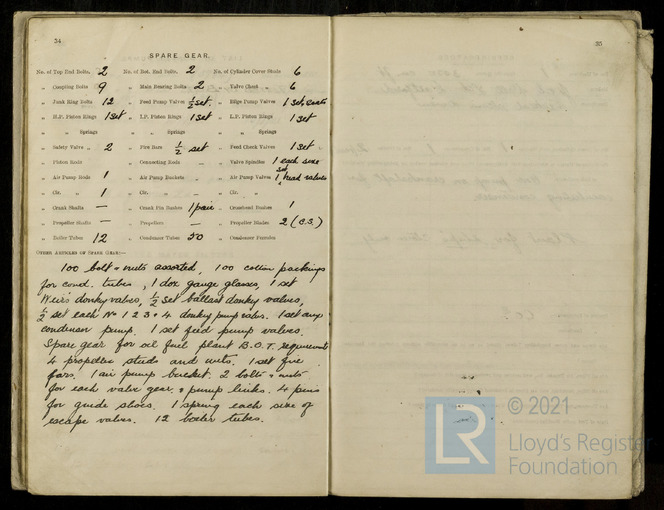 34
SPARE GEAR.
No. of Top End Bolts, 2 No. of Bot. End Bolts, 2 No. of Cylinder Cover Studs 6
„ Coupling Bolts 9 „ Main Bearing Bolts 2 „ Valve Chest „ 6
„ Junk Ring Bolts 12 „ Feed Pump Valves ½ set. „ Bilge Pump Valves 1 set, each
„ H.P. Piston Rings 1 set „ I.P. Piston Rings 1 set „ L.P. Piston Rings 1 set
„ „ Springs „ „ Springs „ „ Springs
„ Safety Valve „ 2 „ Fire Bars ½ set „ Feed Check Valves 1 set
„ Piston Rods „ Connecting Rods – „ Valve Spindles 1 each size
„ Air Pump Rods 1 „ Air Pump Buckets „ Air Pump Valves 1 set head valves
„ Cir. „ 1 „ Cir. „ – „ Cir. „
„ Crank Shafts – „ Crank Pin Bushes 1 pair „ Crosshead Bushes 1
„ Propeller Shafts – „ Propellers – „ Propeller Blades 2 (C.S.)
„ Boiler Tubes 12 „ Condenser Tubes 50 „ Condenser Ferrules
OTHER ARTICLES OF SPARE GEAR:—
100 bolt & nuts assorted, 100 cotton packings
for cond. tubes, 1 dox gauge glasses, 1 set
Weirs donkey valves, ½ set ballast donkey valves,
½ set each No 1 2 3 & 4 donkey pump valves. 1 set
condenser pump. 1 set feed pump valves.
Spare gear for oil fuel plant B.O.T. requirements
4 propeller studs and nuts. 1 set fire
bars. 1 air pump bucket. 2 bolts & nuts
for each valve gear & pump links. 4 pins
for guide shoes. 1 spring each size of
escape valves. 12 boiler tubes.
35
© 2021
LR
Lloyd's Register
Foundation